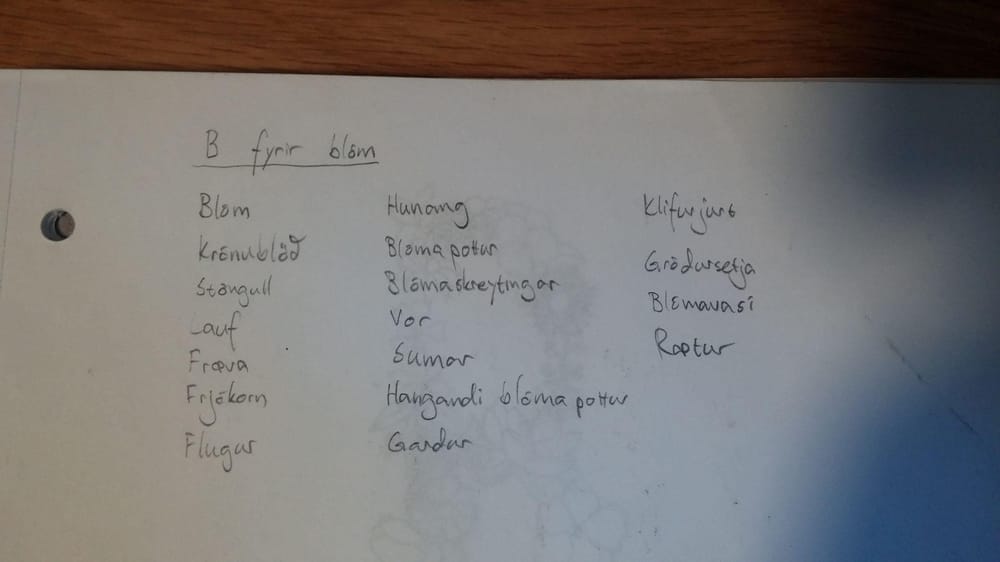 B fyrir blóm
Blóm
Krónublöð
Stöngull
Lauf
Fræva
Frjókorn
Flugur
Hunang
Blómapottur
Blómaskreytingar
Vor
Sumar
Hangandi blómapottur
Garður
Klifurjurt
Gróðursetja
Blómavasi
Rætur